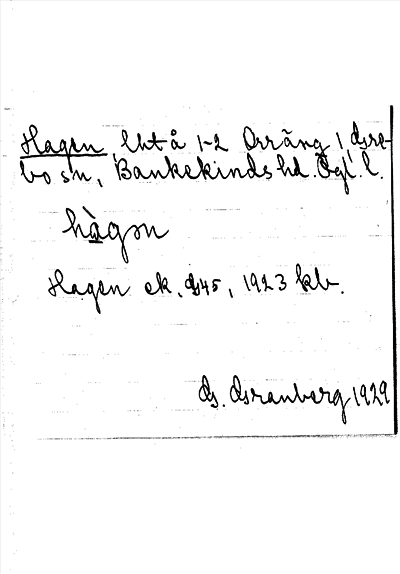 Hagen, lht å 1-2 Orräng, Gre-
bo sn, Bankekinds hd. Ögl. l.
hàgən
Hagen ek. G45, 1923 kb.
G. Granberg 1929